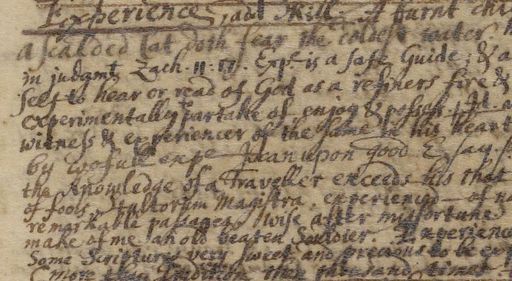 Experience, and Skill. A burnt chi
a scalded Cat doth fear the coldest water
in judgmt Zach. 11. 11. Expe is a safe Guide; & a
self to hear or read of God as a refiners fire &
experimentally partake of enjoy & possess
witness & experiencer of the same in his heart
by wofull expe upon good & say
the Knowledge of a Traveller exceeds his that
of fools. Stultorum Magistra. experienced of
remarkable passages. wise after misfortune
make of me an old beaten Souldier. Experience
Some Scriptures very sweet and precious to be exp
more than tradition